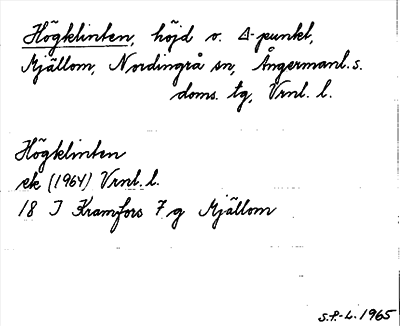 Högklinten, höjd o. Δ-punkt,
Mjällom, Nordingrå sn, Ångermanl. s.
doms. tg, Vrnl. l.
Högklinten
ek (1964) Vrnl. l.
18 I Kramfors 7 g Mjällom
S.F.-L. 1965